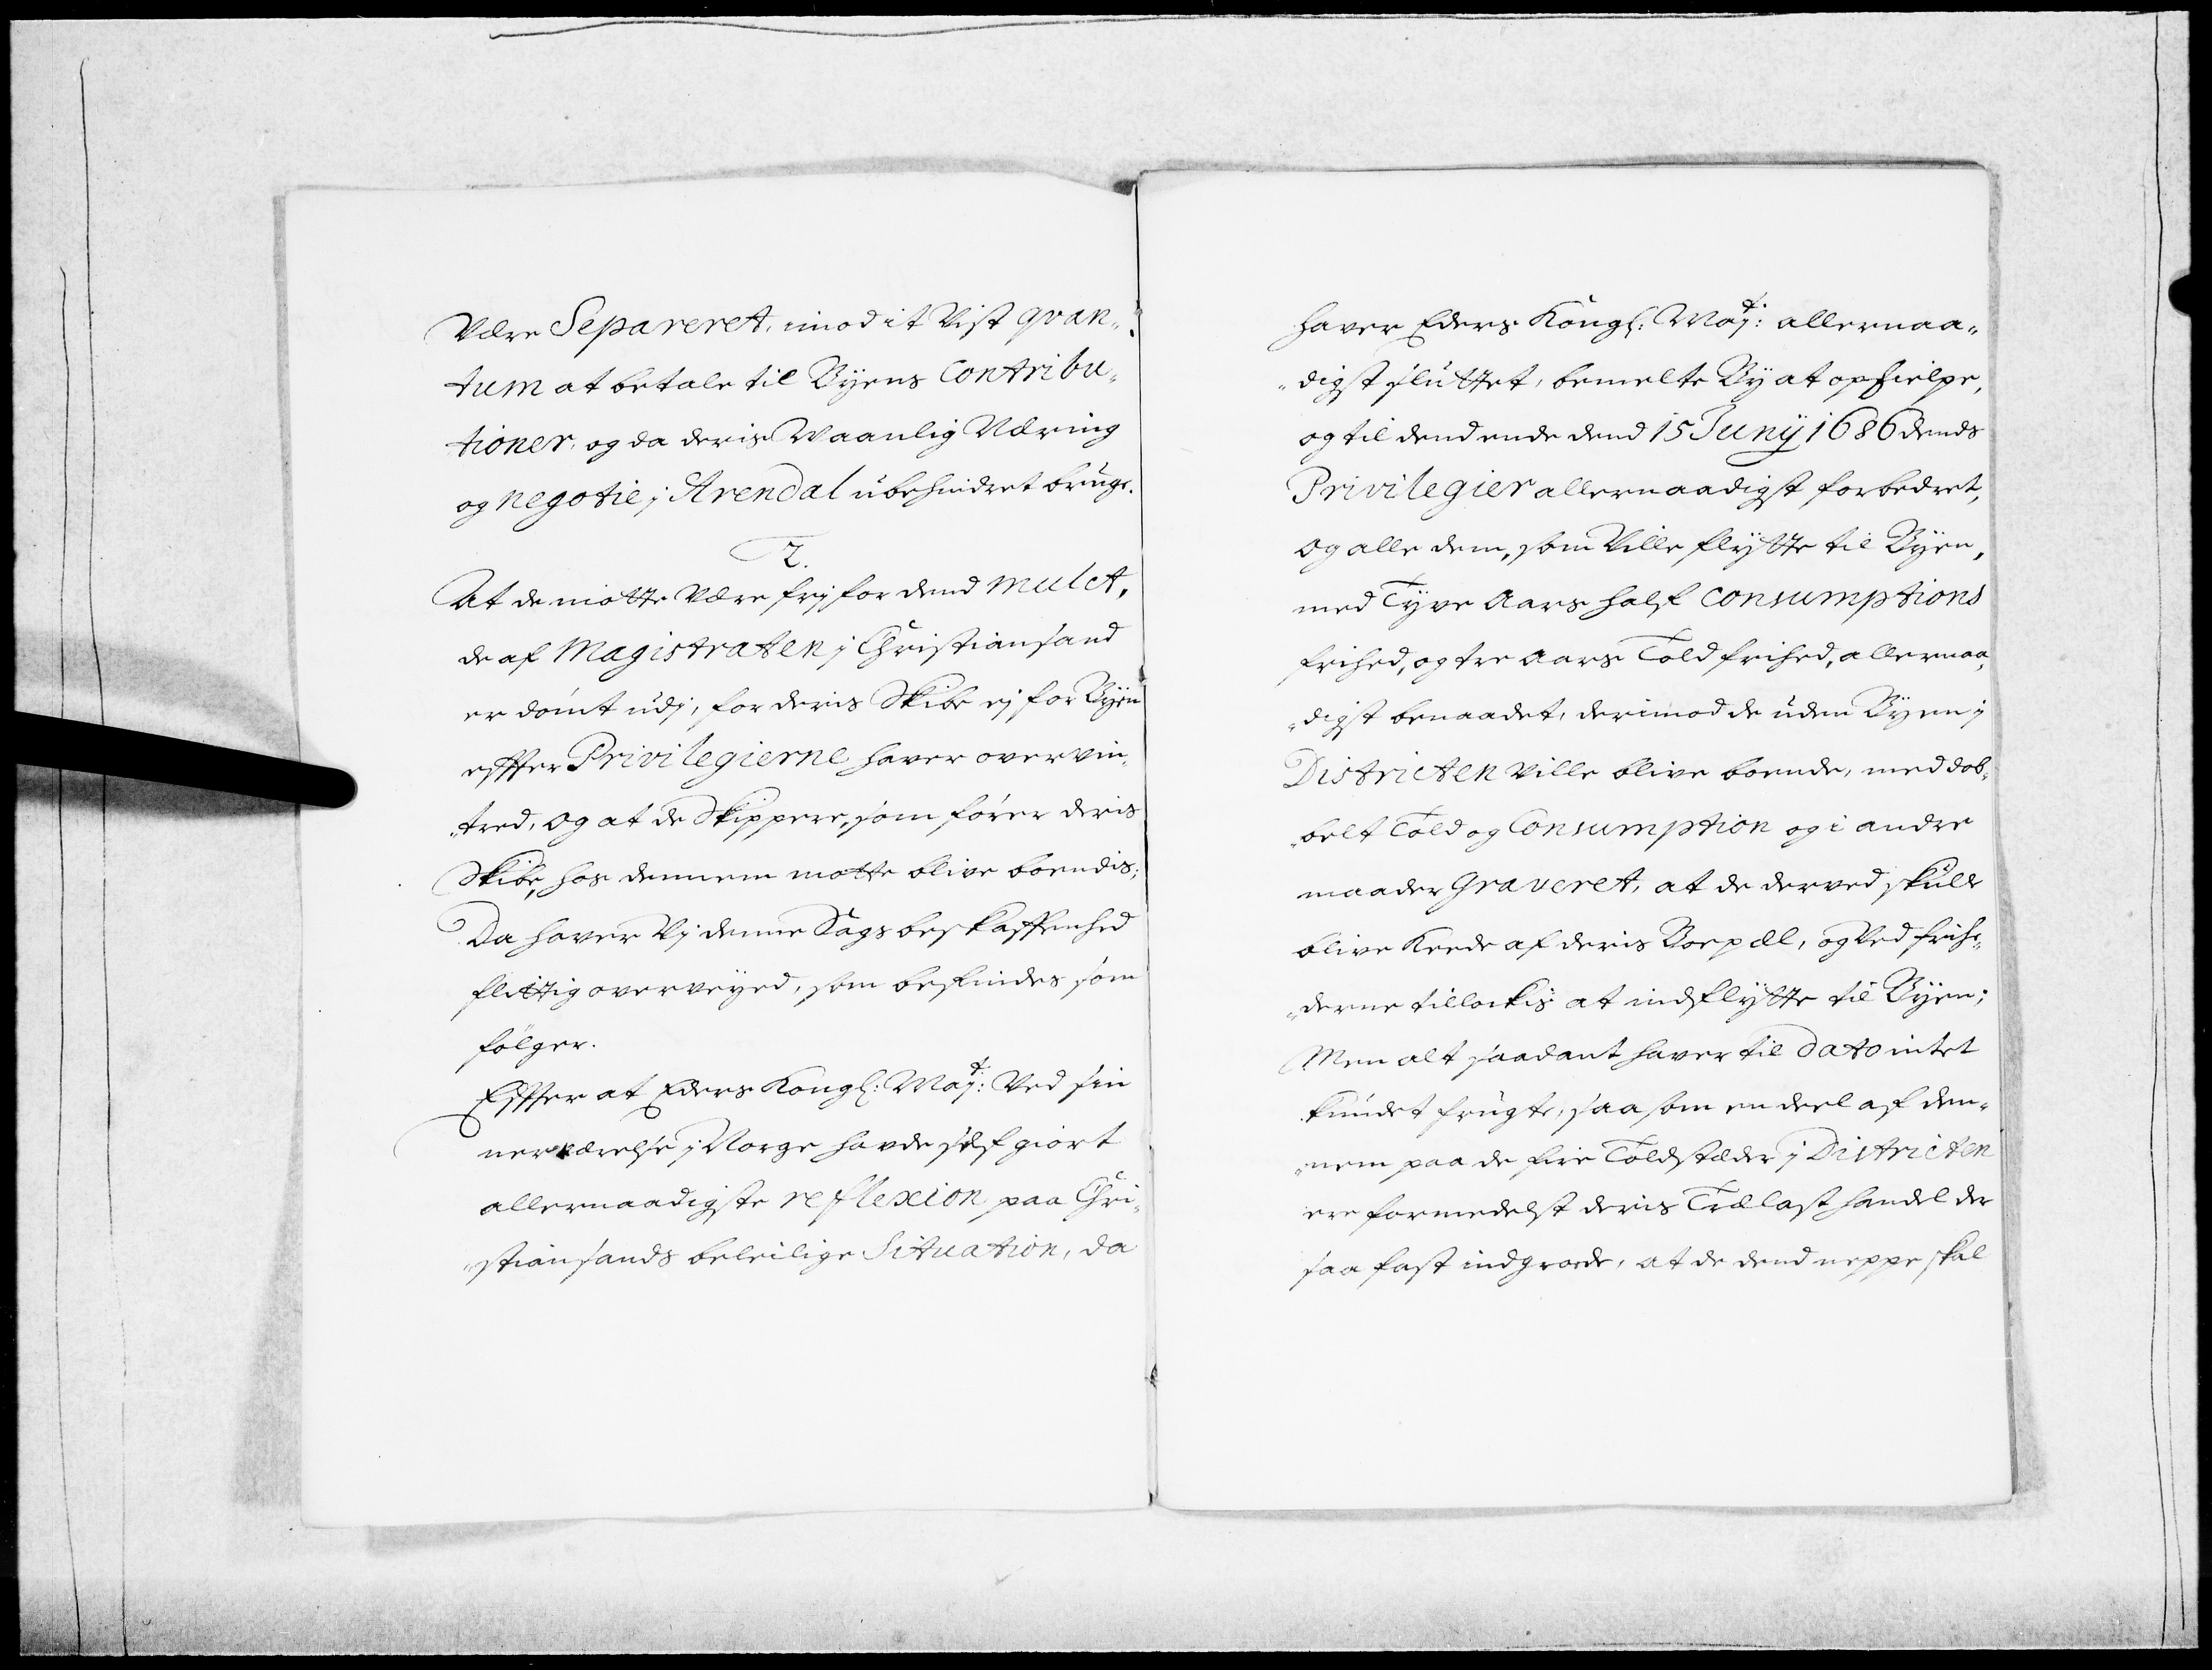 Være Separeret, imod it vist qvan„
tum at betale til Byens Contribu„
tioner, og da deris Waanlig Næring
og negotie j Arendal ubehindret bruge.
2.
At de motte være frj for dend mulct,
de af Magistraten j Christiansand
er dømt udj, for deris Skibe ej for Byen
effter Privilegierne haver overvin„
„tred, og at de Skippere, som fører deris
Skibe, hos dennem motte blive boendis;
Da haver Vj denne Sags beskaffenhed
flittig overveyed, som befindes som
følger.
Effter at Eders Kongl: Maj:t ved sin
nerværelse j Norge havde self giort
allernaadigste reflexion paa Chri„
„stiansands beleilige Situation, da
haver Eders Kongl: Maj:t allernaa„
„digst sluttet, bemelte By at ophielpe,
og til dend ende dend 15 Junij 1686 dends
Privilegier allernaadigst forbedret,
og alle dem, som ville flytte til Byen,
med Tyve Aars half Consumptions
frihed, og tre Aars Told frihed, allernaa„
„digst benaadet, derimod de uden Byen j
Districten ville blive boende, med dob„
„belt Told og Consumption og i andre
maader graveret, at de derved skulle
blive Keede af deris Boepæl, og ved frihe„
„derne tillockis at indflytte til Byen;
Men alt saadant haver til dato intet
kundet frugte, saasom en deel af den„
„nem paa de fire Toldstæder j Districten
ere formedelst deris Trælast handel der
saa fast indgroede, at de dend neppe skal